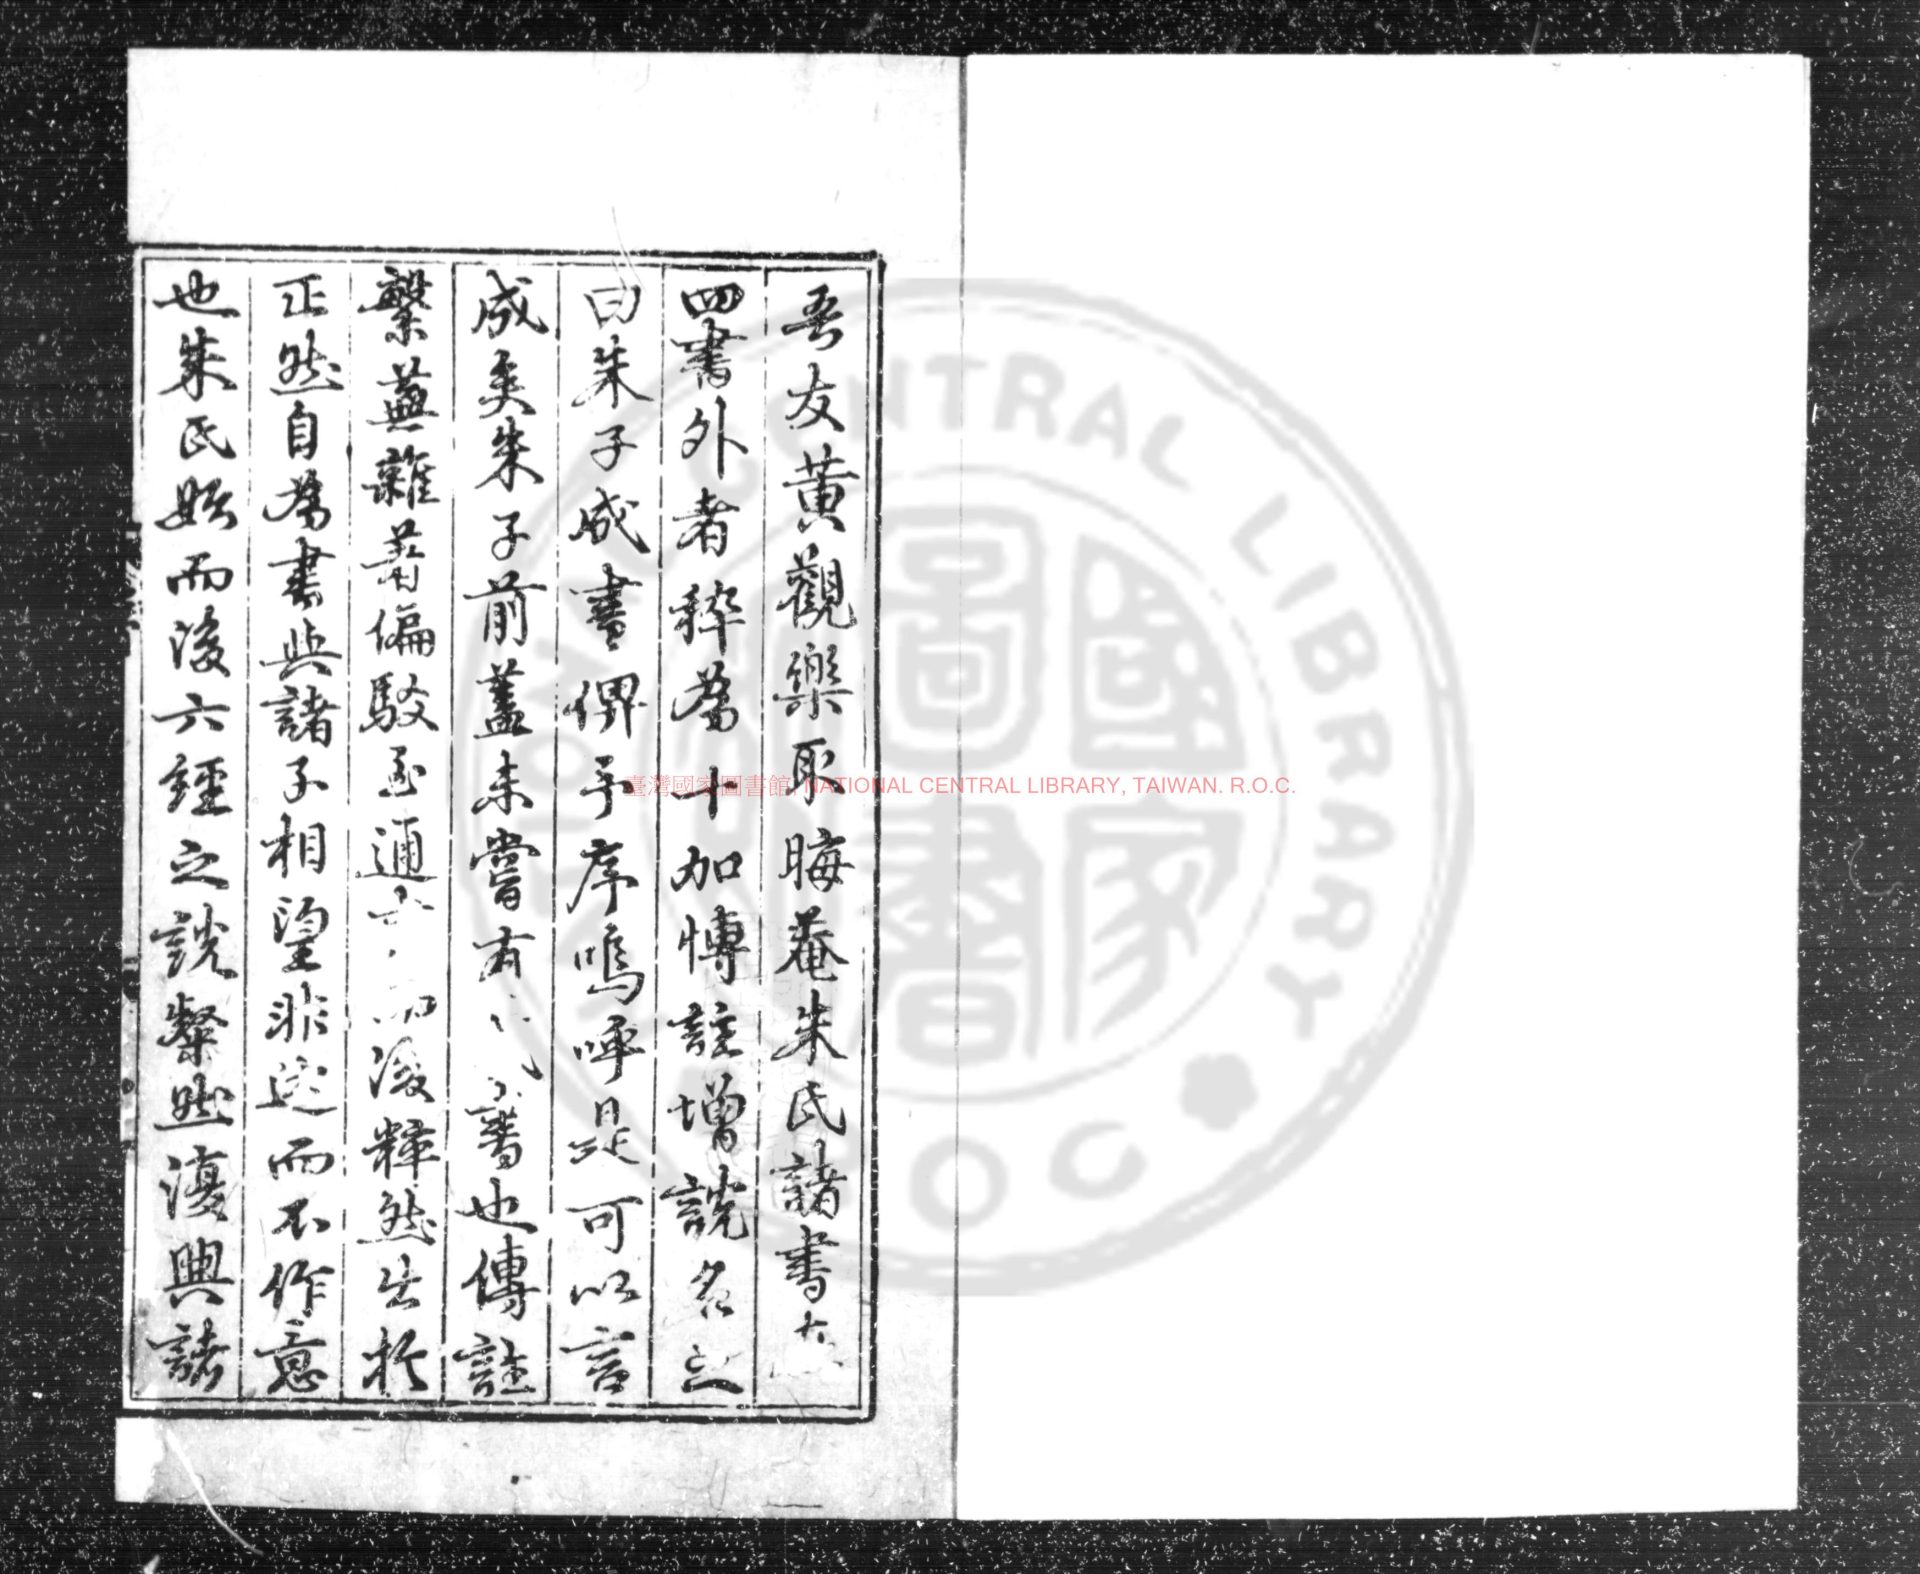 吾友黃觀樂取晦菴朱氏諸書在
四書外者稡為十加傳註增說名之
曰朱子成書俾予序嗚呼是可以言
成矣朱子前蓋未嘗有書也傳註
繁蕪雜著偏駁至通而後釋然出於
正然自為書與諸子相望非述而不作意
也朱氏始而後六經之說粲然復興諸
臺灣國家圖書館, NATIONAL CENTRAL LIBRARY, TAIWAN. R.O.C.
NATIONAL CENTRAL LIBRARY
R.O.C.
國家圖書